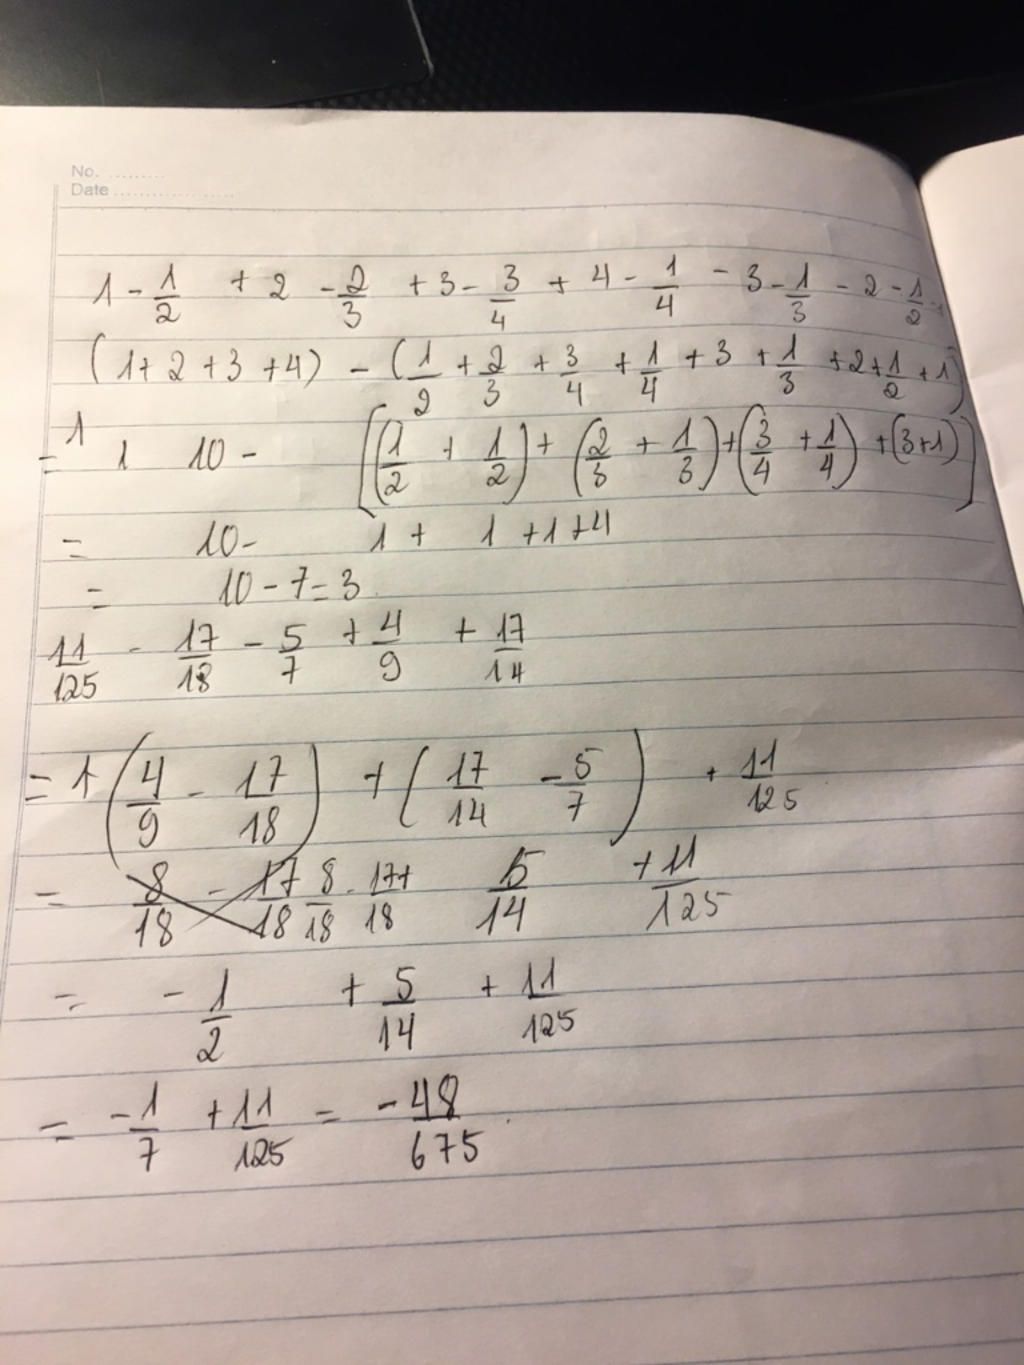 No. ..........
Date ....................
1 - 1/2 + 2 - 2/3 + 3 - 3/4 + 4 - 1/4 - 3 - 1/3 - 2 - 1/2 -
(1+2+3+4) - (1/2 + 2/3 + 3/4 + 1/4 + 3 + 1/3 + 2 + 1/2 + 1)
= 1 1 10 - [(1/2 + 1/2) + (2/3 + 1/3) + (3/4 + 1/4) + (3+1)]
= 10 - 1 + 1 + 1 + 4
= 10 - 7 = 3
11/125 - 17/18 - 5/7 + 4/9 + 17/14
= + (4/9 - 17/18) + (17/14 - 5/7) + 11/125
= 8/18 - 17/18 8/18 - 17/18 + 5/14 + 11/125
= - 1/2 + 5/14 + 11/125
= - 1/7 + 11/125 = - 48/675